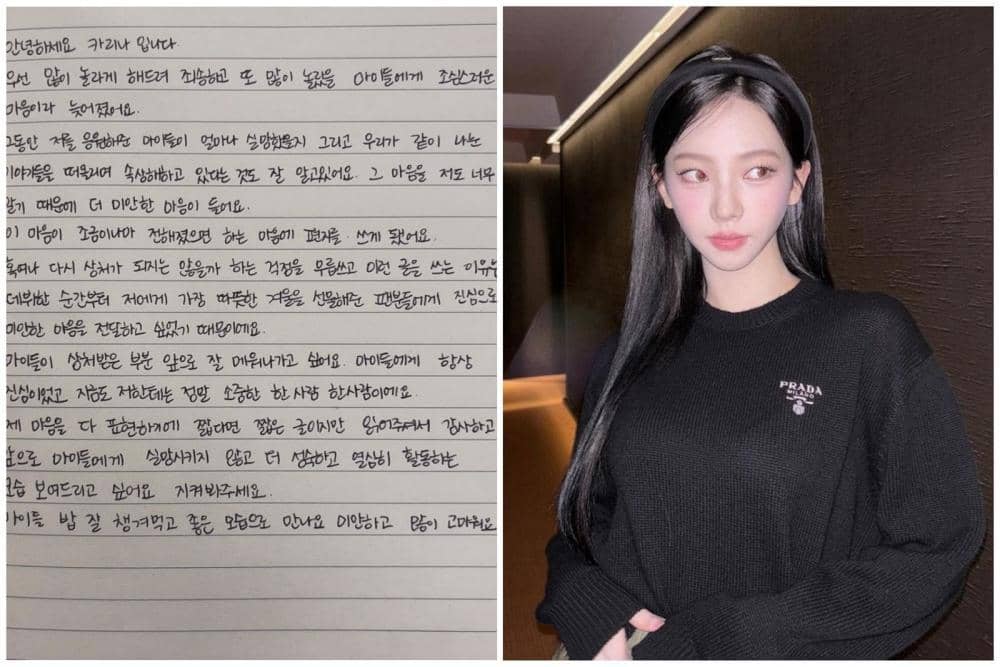 안녕하세요 카리나 입니다.
우선 많이 놀라게 해드려 죄송하고 또 많이 놀랐을 마이들에게 조심스러운
마음이라 늦어졌어요.
그동안 저를 응원해준 마이들이 얼마나 실망했을지 그리고 우리가 같이 나눈
이야기들을 떠올리며 속상해하고 있다는 것도 잘 알고있어요. 그 마음을 저도 너무
알기 때문에 더 미안한 마음이 들어요.
이 마음이 조금이나마 전해졌으면 하는 마음에 편지를 쓰게 됐어요.
혹여나 다시 상처가 되지는 않을까 하는 걱정을 무릅쓰고 이런 글을 쓰는 이유는
데뷔한 순간부터 저에게 가장 따뜻한 겨울을 선물해준 팬분들에게 진심으로
미안한 마음을 전달하고 싶었기 때문이에요.
마이들이 상처받은 부분 앞으로 잘 메워나가고 싶어요. 마이들에게 항상
진심이었고 지금도 저한테는 정말 소중한 한 사람 한사람이에요.
제 마음을 다 표현하기에 짧다면 짧은 글이지만 읽어주셔서 감사하고
앞으로 마이들에게 실망시키지 않고 더 성숙하고 열심히 활동하는
모습 보여드리고 싶어요 지켜봐주세요.
마이들 밥 잘 챙겨먹고 좋은 모습으로 만나요 미안하고 많이 고마워요
PRADA
MILANO